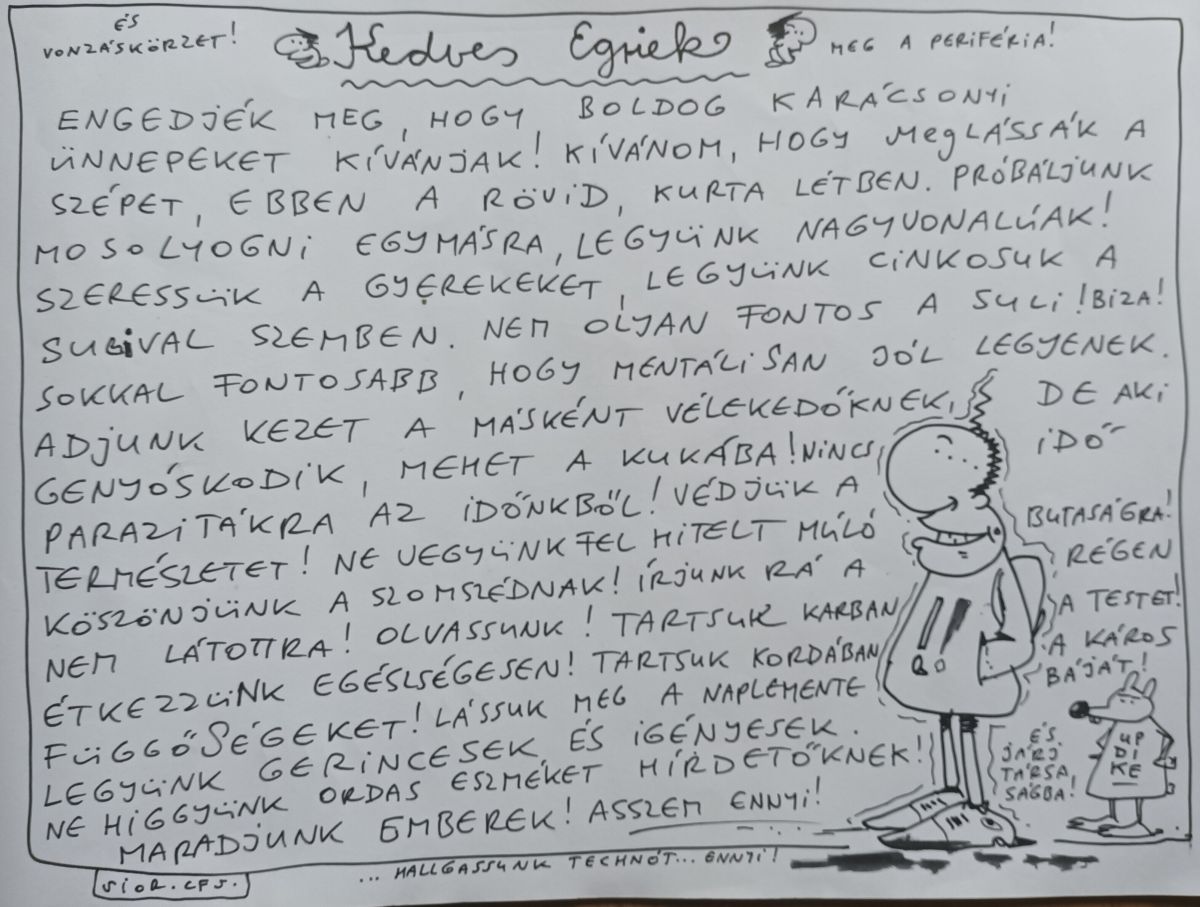 ÉS
VONZÁSKÖRZET!
Kedves Egriek
MEG A PERIFÉRIA!
ENGEDJÉK MEG, HOGY BOLDOG KARÁCSONYI
ÜNNEPEKET KÍVÁNJAK! KÍVÁNOM, HOGY MEGLÁSSÁK A
SZÉPET, EBBEN A RÖVID, KURTA LÉTBEN. PRÓBÁLJUNK
MOSOLYOGNI EGYMÁSRA, LEGYÜNK NAGYVONALÚAK!
SZERESSÜK A GYEREKEKET, LEGYÜNK CINKOSUK A
SULIVAL SZEMBEN. NEM OLYAN FONTOS A SULI! BIZA!
SOKKAL FONTOSABB, HOGY MENTÁLISAN JÓL LEGYENEK.
ADJUNK KEZET A MÁSKÉNT VÉLEKEDŐKNEK, DE AKI
GENYÓSKODIK, MEHET A KUKÁBA! NINCS IDŐ
PARAZITÁKRA AZ IDŐNKBŐL! VÉDJÜK A BUTASÁGRA!
TERMÉSZETET! NE VEGYÜNK FEL HITELT MÚLÓ RÉGEN
KÖSZÖNJÜNK A SZOMSZÉDNAK! ÍRJUNK RÁ A
NEM LÁTOTTRA! OLVASSUNK! TARTSUK KARBAN A TESTET!
ÉTKEZZÜNK EGÉSLSÉGESEN! TARTSUK KORDÁBAN A KÁROS
FÜGGŐSÉGEKET! LÁSSUK MEG A NAPLEMENTE BÁJÁT!
LEGYÜNK GERINCESEK ÉS IGÉNYESEK.
NE HIGGYÜNK ORDAS ESZMÉKET HÍRDETŐKNEK!
MARADJUNK EMBEREK! ASSZEM ENNYI!
ÉS
JÁRJ
TÁRSA
SÁGBA!
UP
DI
KE
... HALLGASSUNK TECHNÓT... ENNYI!
SIOR.CFS.